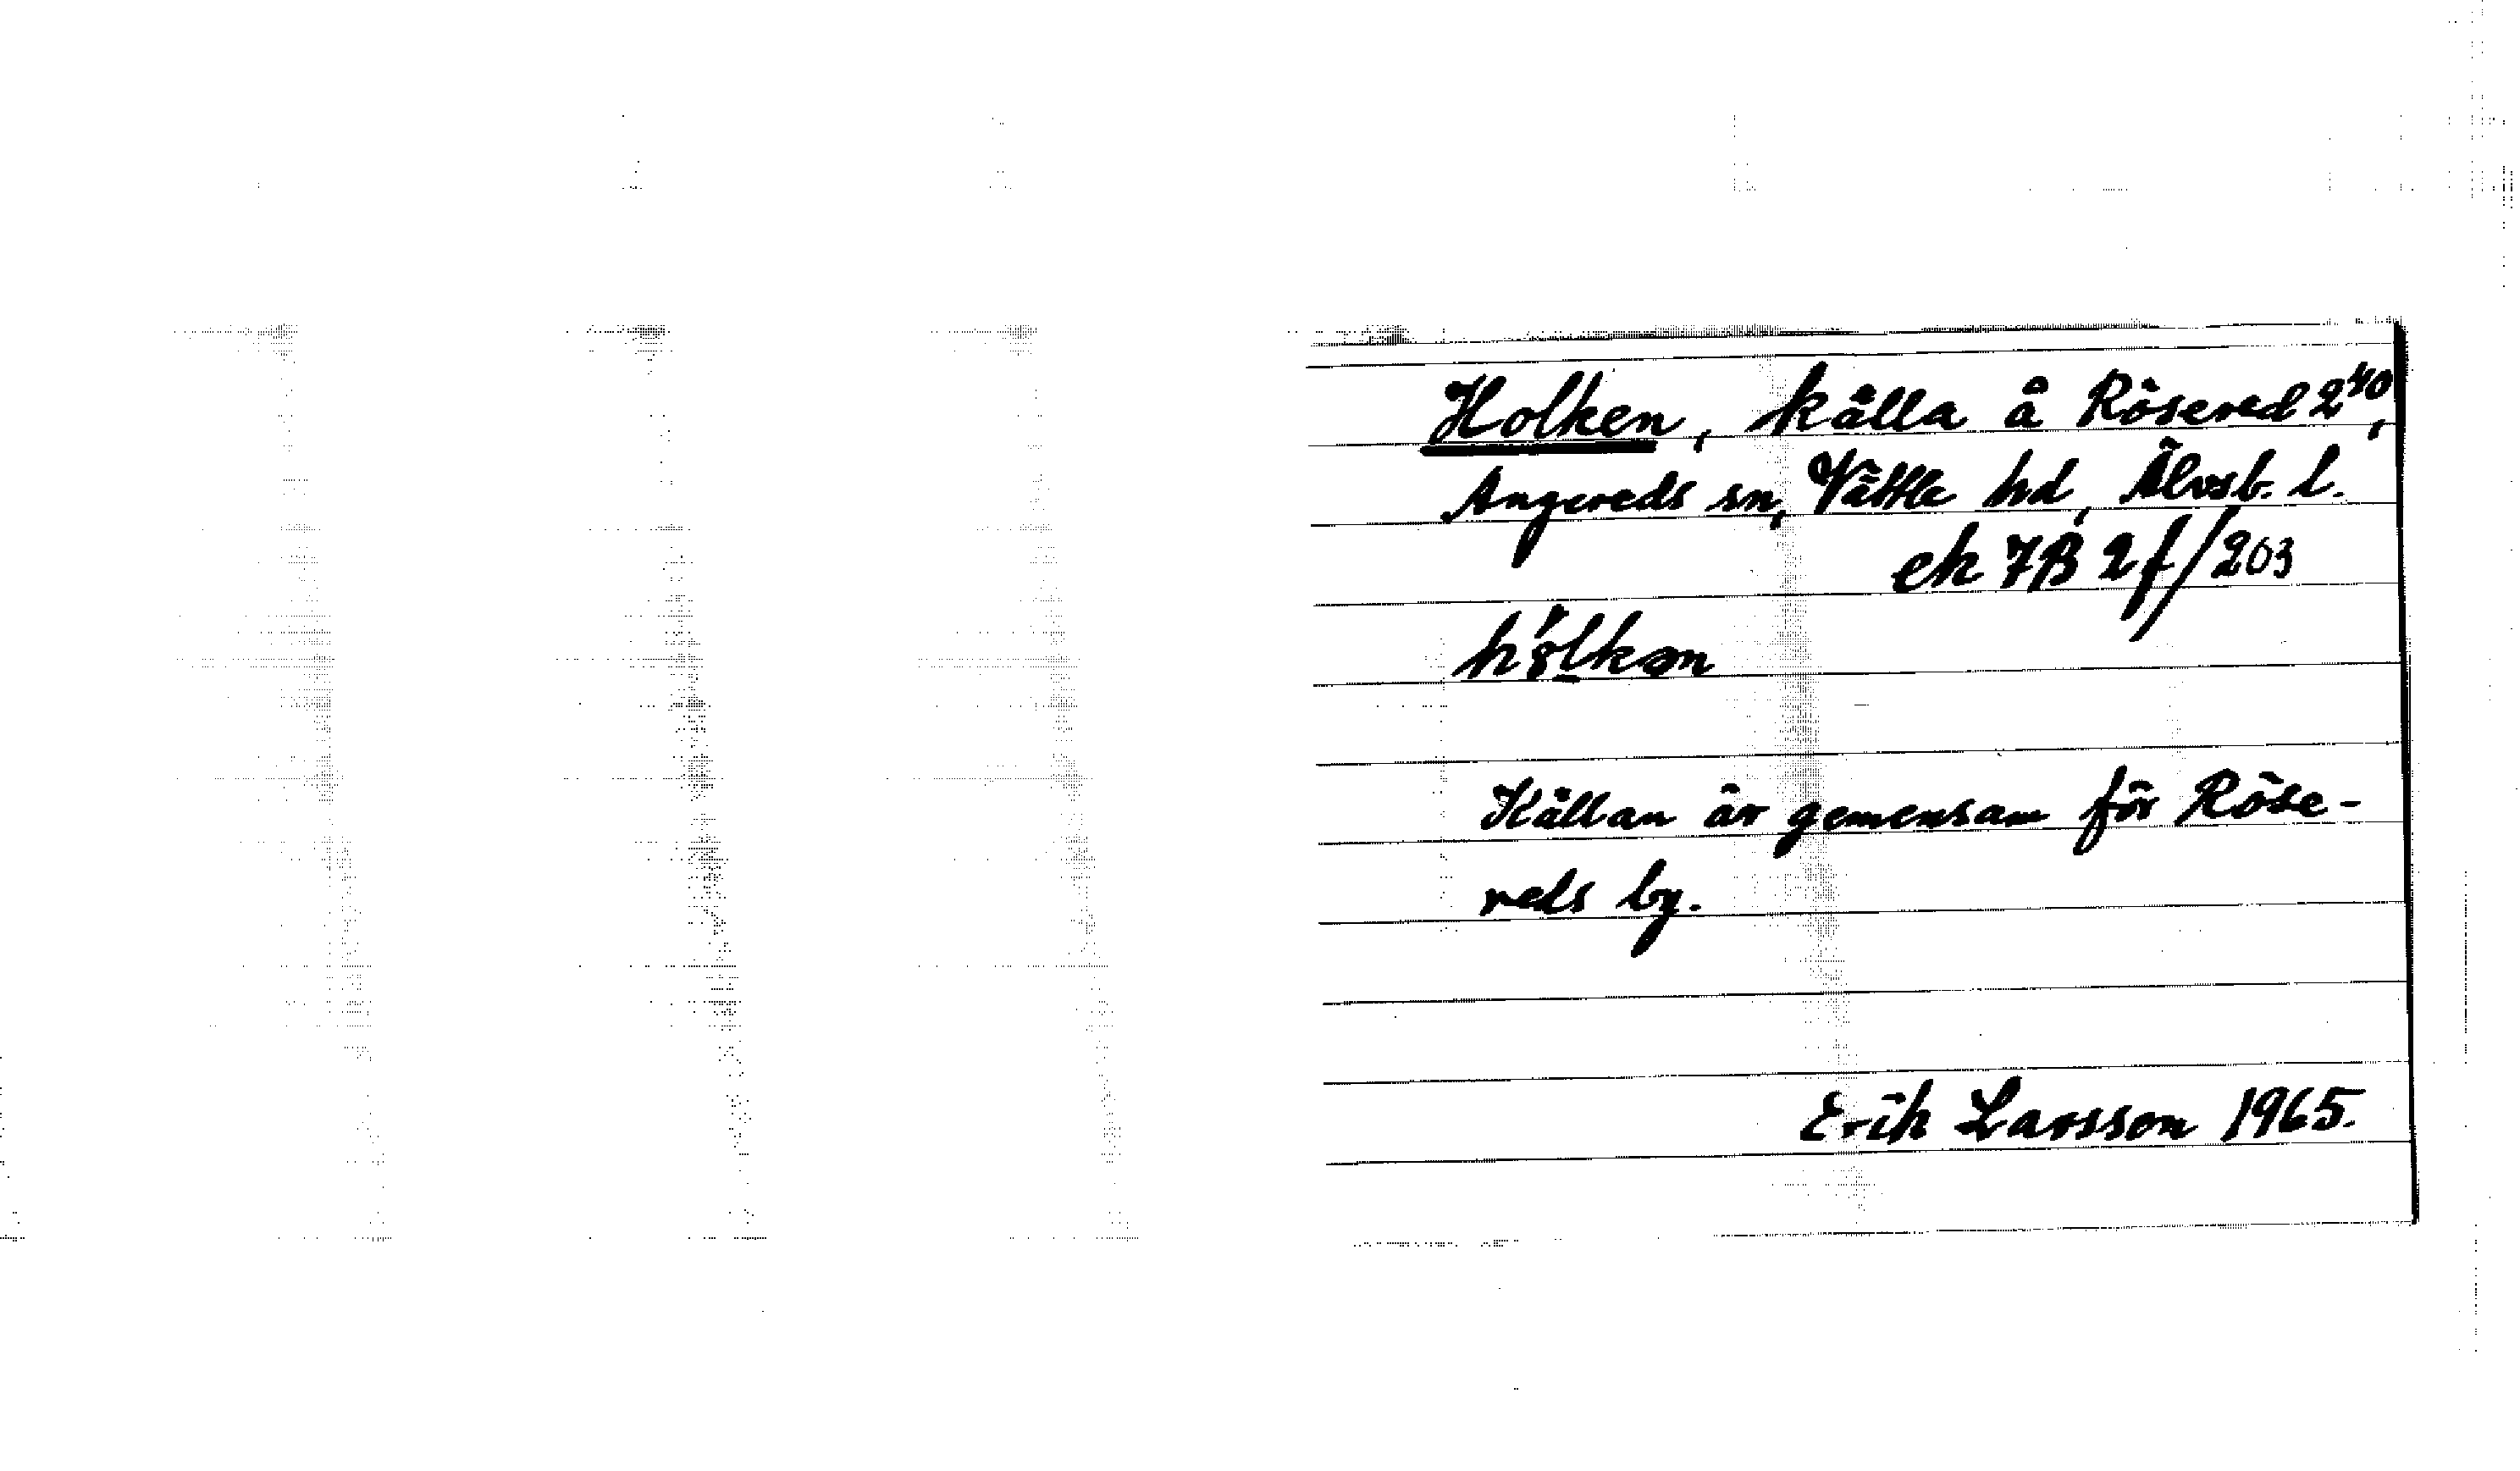 Holken, källa å Rösered 2⁴⁰,
Angereds sn, Vättle hd, Älvsb. l.
ek 7B 2f/203
hólkən
Källan är gemensam för Röse-
reds by.
Erik Larsson 1965.